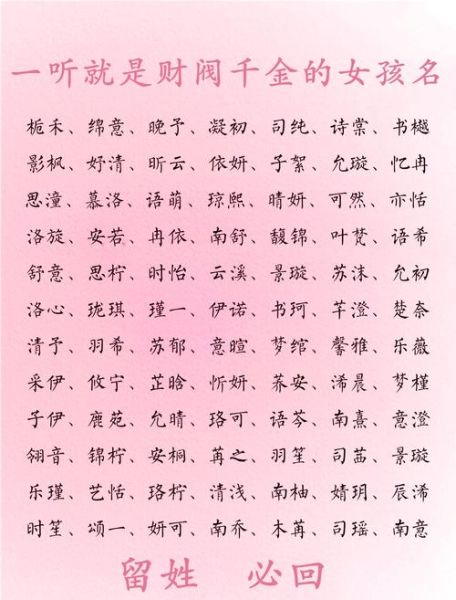 一听就是财阀千金的女孩名
栀禾、绵意、晚予、凝初、司纯、诗棠、书樾
影枫、妤清、昕云、依妍、子絮、允璇、忆冉
思潼、慕洛、语萌、琼熙、晴妍、可然、亦恬
洛旋、安若、冉依、南舒、馥锦、叶梵、语希
舒意、思柠、时怡、云溪、景璇、苏沫、允初
洛心、珑琪、瑾一、伊诺、书珂、芊澄、楚奈
清予、羽希、苏郁、意暄、梦绾、馨雅、乐薇
采伊、攸宁、芷晗、忻妍、荞安、浠晨、梦槿
子伊、鹿苑、允晴、珞可、语芩、南熹、意澄
翎音、锦柠、安桐、苒之、羽笙、司茜、景璇
乐瑾、艺恬、珞柠、清浅、南柚、婧玥、辰浠
时笙、颂一、妍可、南乔、木苒、司瑶、南意
留姓 必回